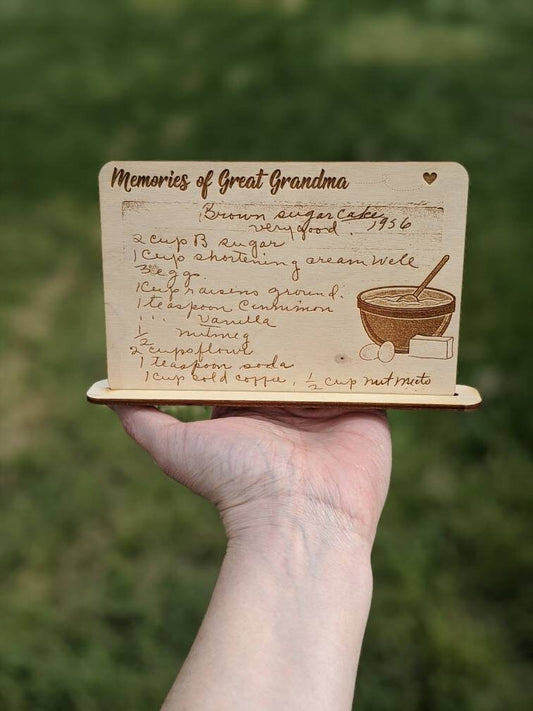 Memories of Great Grandma
Brown sugar cake
very good. 1956
2 cup B sugar
1 cup shortening cream well
3 eggs.
1 cup raisins ground.
1 teaspoon Cinnimon
" " Vanilla
1/2 nutmeg
2 cups flour
1 teaspoon soda
1 cup cold coffee, 1/2 cup nut meats